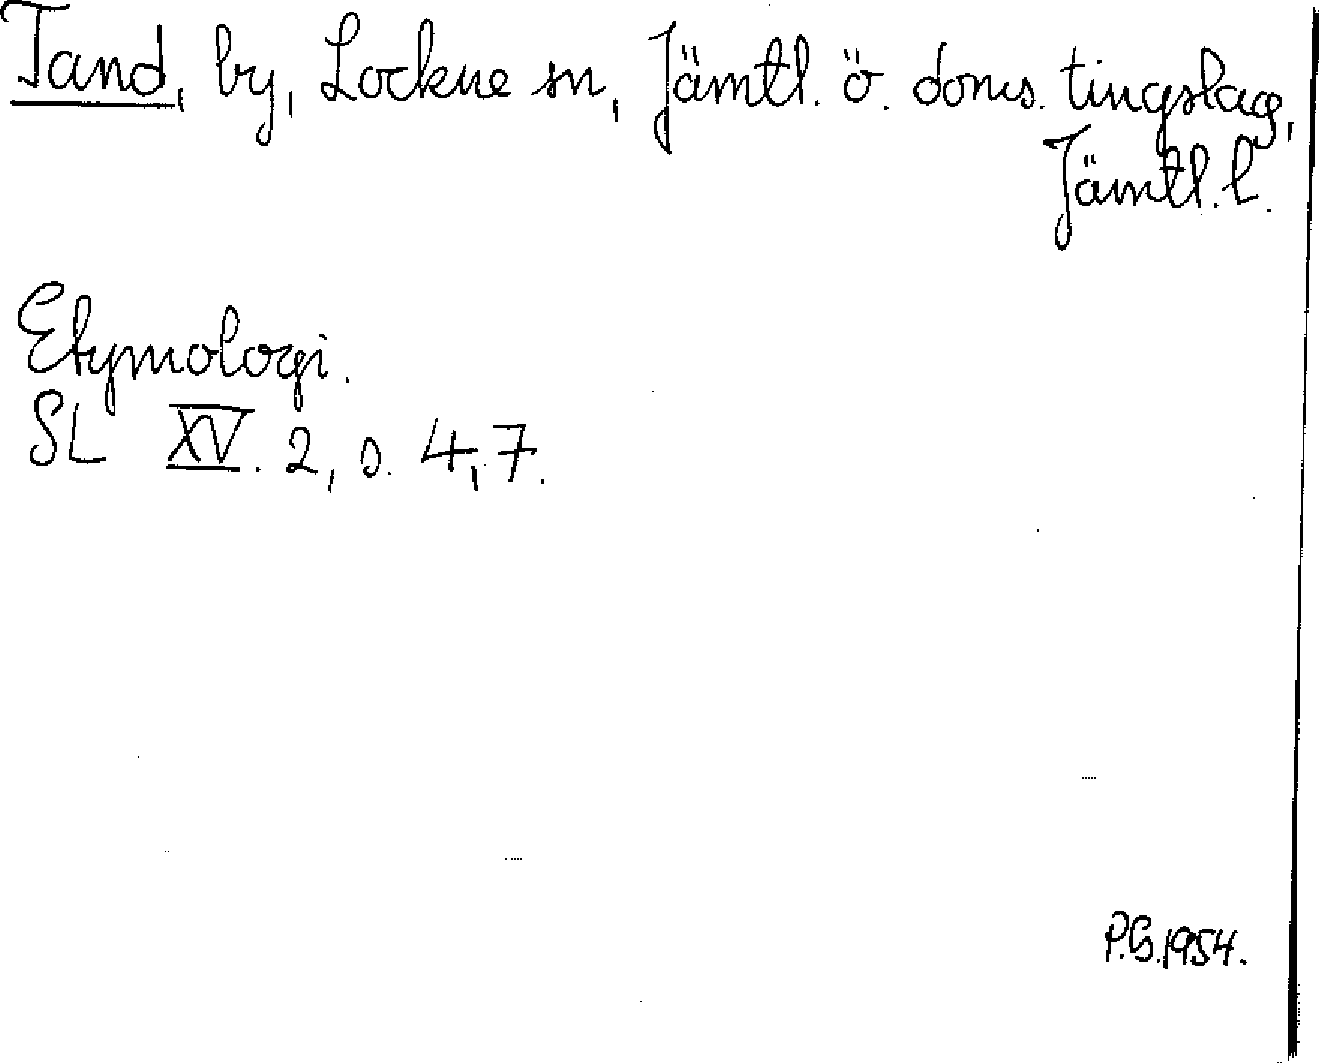 Tand, by, Lockne sn, Jämtl. ö. doms. tingslag,
Jämtl. l.
Etymologi.
SL XV. 2, s. 4, 7.
P.G. 1954.